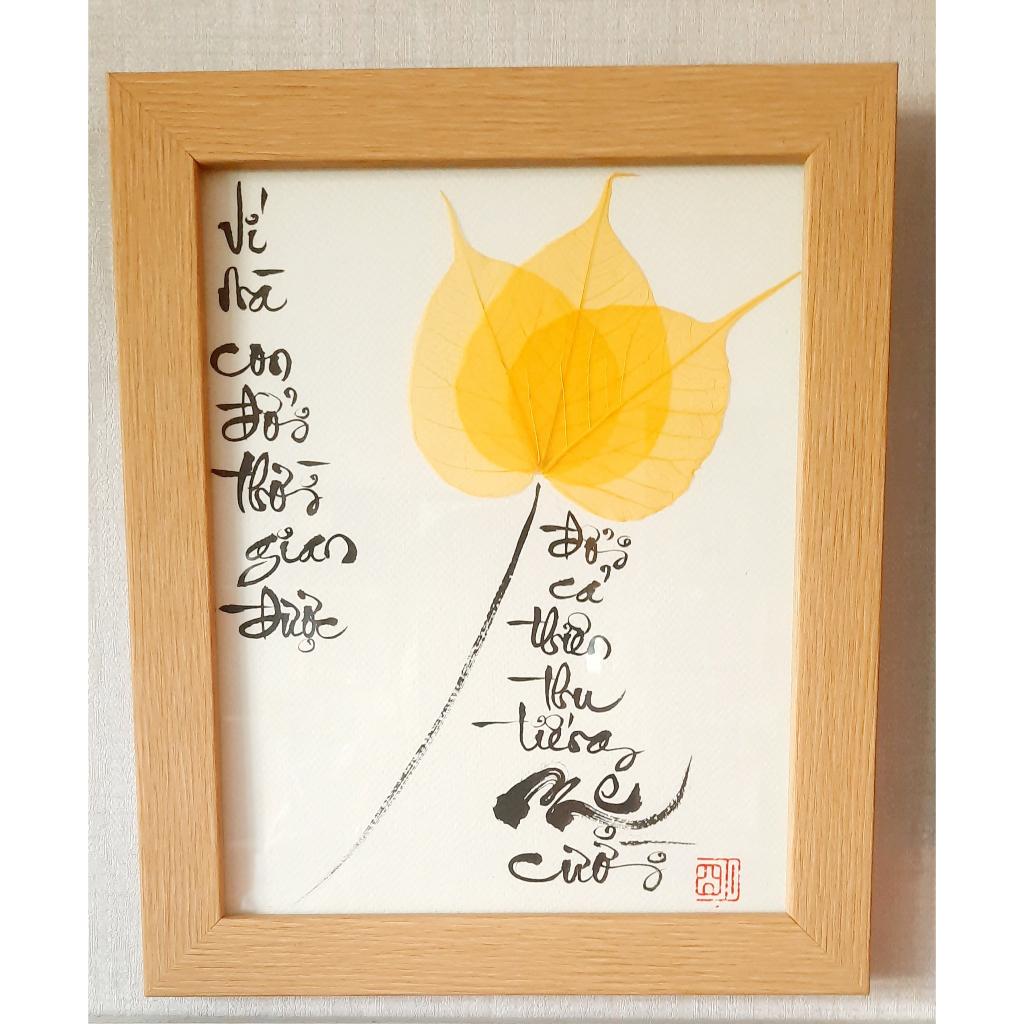 Ví
mà
con
đổi
thời
gian
được
Đổi
cả
thiên
thu
tiếng
Mẹ
cười